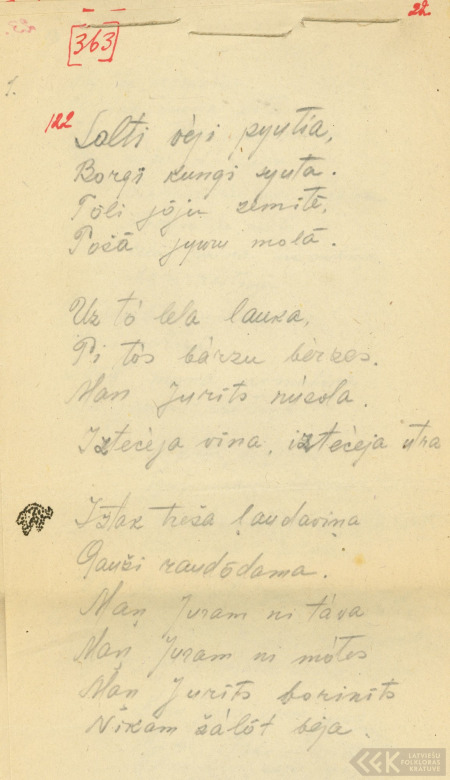 22
[363]
1.
122
Solti vēji pyutia,
Borgi kungi syuta.
Tōli jōju zemitē,
Pošā jyuru molā.
Uz tō lela lauka,
Pi tōs bārzu bērzes.
Man Jurits nūsola.
Iztecēja vīna, iztecēja ūtra
Iztak treša ļaudaviņa
Gauži raudōdama.
Maņ Juram ni tāva
Maņ Juram ni mōtes
Maņ Jurits borinits
Nikam žālōt bēja.
LATVIEŠU
FOLKLORAS
KRĀTUVE